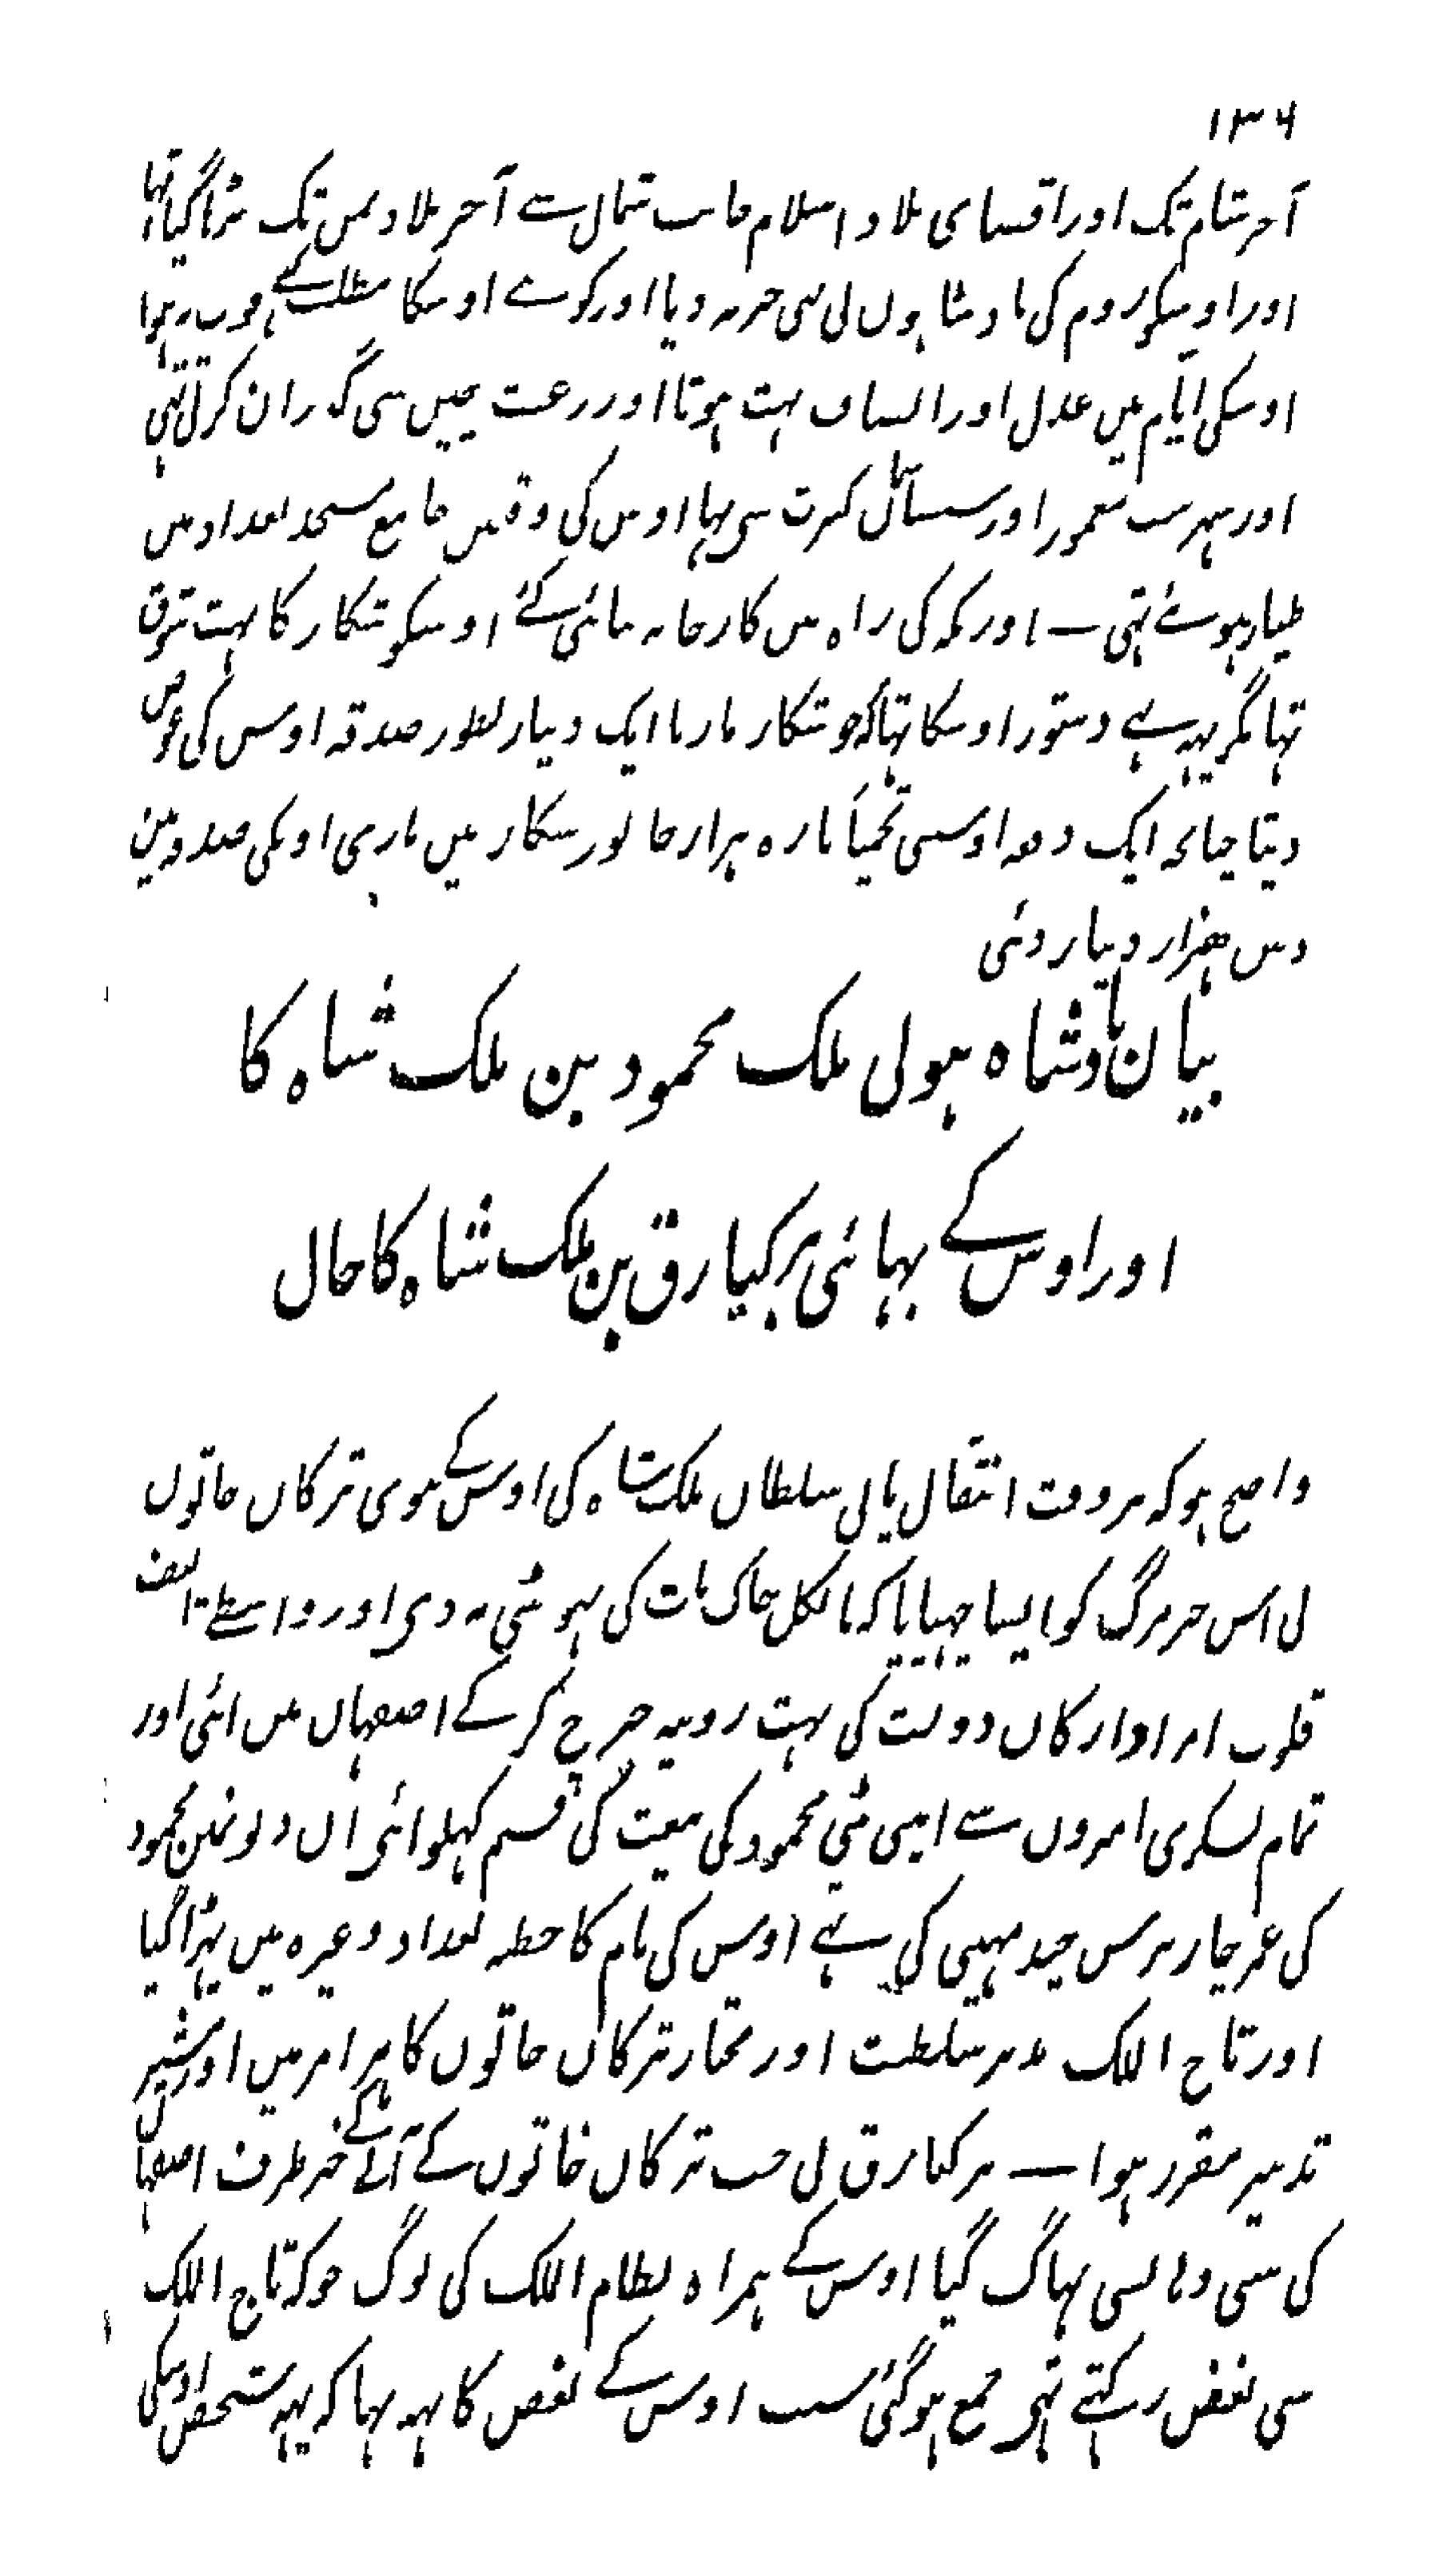 ۱۳۶
آخر شام تک اور اقصای بلاد اسلام جانب شمال سے آخر بلاد یمن تک پڑا گیا تہا
اور اوسکو روم کی بادشاہوں نی بہی جزیہ دیا اور کوے اوسکا مطلب کے فوت نہوا
اوسکی ایام میں عدل اور انصاف بہت ہوتا اور رعیت چین سی گذران کرتی تہی
اور نہریں معمور اور سستاپن کثرت سی تہا اوس کی وقتیں جامع مسجد بغداد میں
طیار ہوئے تہی ۔ اور مکہ کی راہ میں کارخانہ بنائی گئے اوسکو شکار کا بہت شوق
تہا مگر یہہ ہے دستور اوسکا تہا کہ جو شکار مارتا ایک دینار بطور صدقہ اوس کی عوض
دیتا چنانچہ ایک دفعہ اوسنی تخمیناً بارہ ہزار جانور شکار میں ماری اونکی صدقہ مین
دس ہزار دینار دئی
بیان بادشاہ ہونی ملک محمود بن ملک شاہ کا
اور اوس کے بہائی برکیارق بن ملک شاہ کا حال
واضح ہو کہ بروقت انتقال پانی سلطان ملک شاہ کی اوس کے بیوی ترکان خاتون
نی اس خبر مرگ کو ایسا چہپایا کہ بالکل کی نہ دی اور واسطے تالیف
قلوب امرا و ارکان دولت کی بہت روپیہ خرچ کر کے اصفہان میں ائی اور
تمام لشکری امیروں سے اپنی بیٹی محمود کی بیعت کی قسم کہلوائی ان دلونمین محمود
کی عمر چار برس چند مہینی کی ہے اوس کی نام کا خطبہ بغداد وغیرہ میں پڑہا گیا
اور تاج الملک مدبر سلطنت اور مختار ترکان خاتون کا ہر امر میں اور مشیر
تدبیر مقرر ہوا ۔ برکیارق نی جب ترکان خاتون کے آنے کے خبر طرف اصفہان
کی سنی وہانسی بہاگ گیا اوس کے ہمراہ نظام الملک کی لوگ جو کہ تاج الملک
سی بغض رکہتے تہی جمع ہوگئی سبب اوس کے بغض کا یہہ تہا کہ یہہ شخص اوسکی